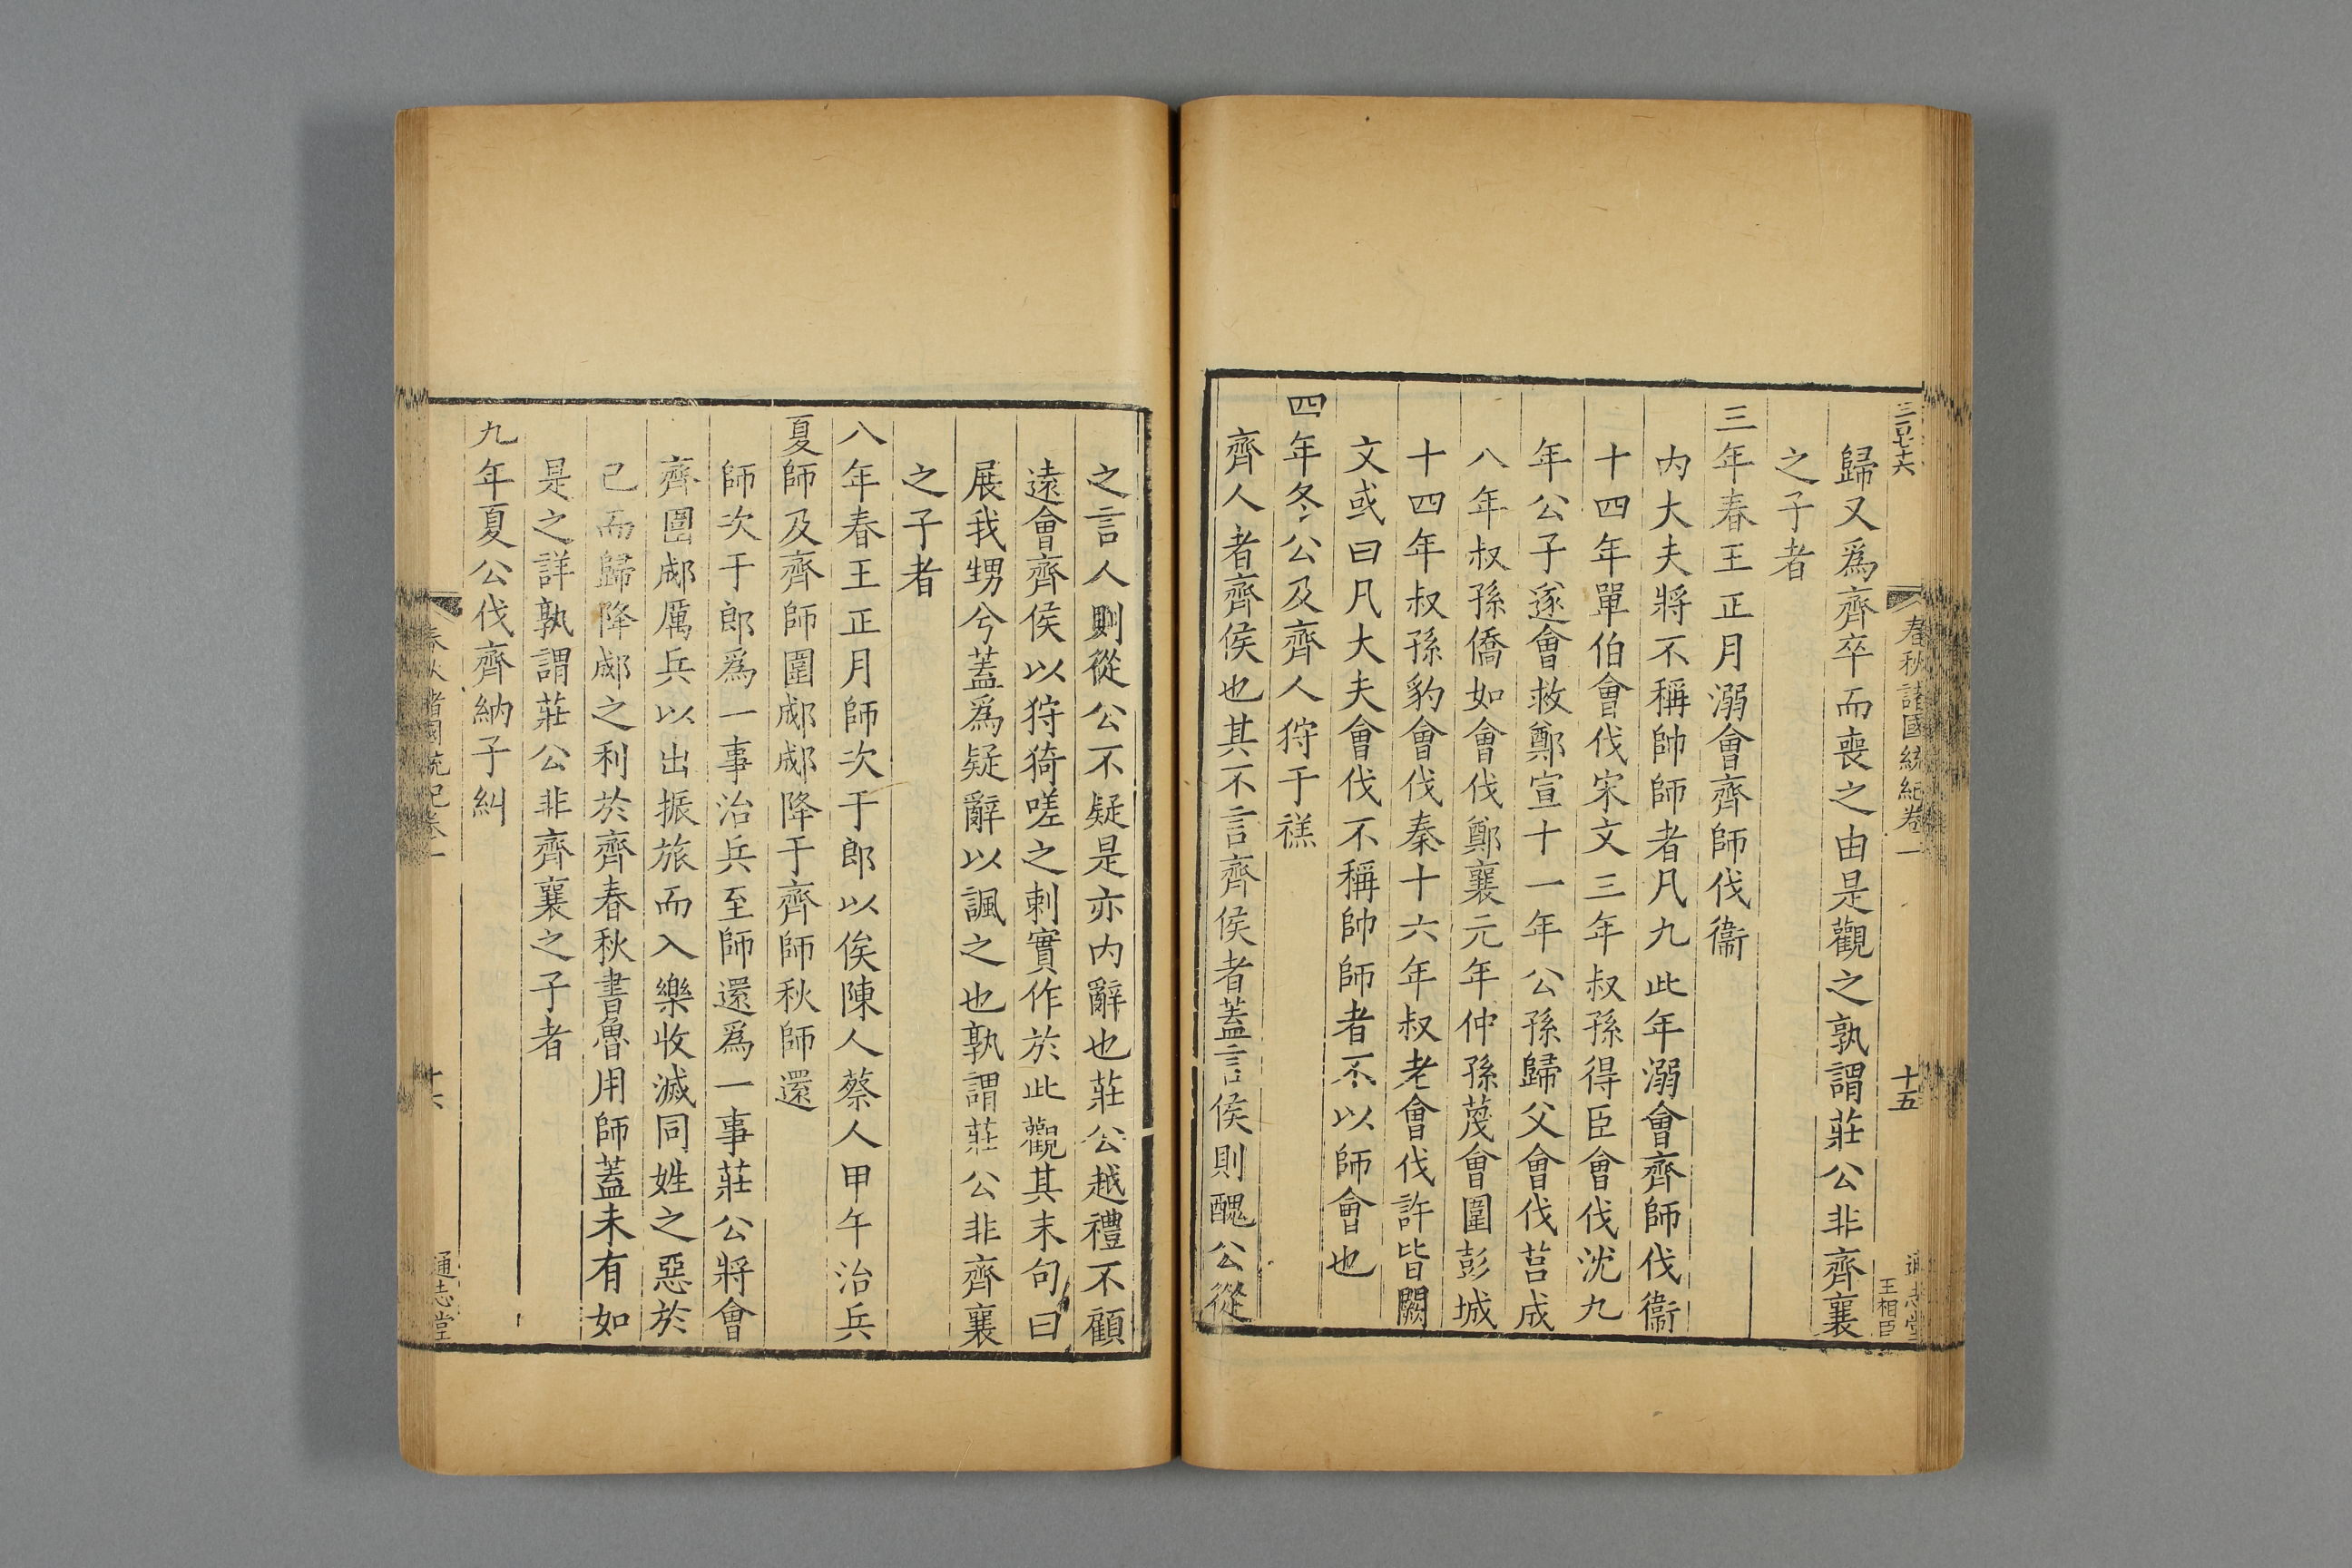 三百七十六
春秋諸國統紀卷一
十五
通志堂
王相臣
歸又爲齊卒而喪之由是觀之孰謂莊公非齊襄
之子者
三年春王正月溺會齊師伐衞
内大夫將不稱帥師者凡九此年溺會齊師伐衞
十四年單伯會伐宋文三年叔孫得臣會伐沈九
年公子遂會救鄭宣十一年公孫歸父會伐莒成
八年叔孫僑如會伐鄭襄元年仲孫蔑會圍彭城
十四年叔孫豹會伐秦十六年叔老會伐許皆闕
文或曰凡大夫會伐不稱帥師者不以師會也
四年冬公及齊人狩于禚
齊人者齊侯也其不言齊侯者蓋言侯則醜公從
之言人則從公不疑是亦内辭也莊公越禮不顧
遠會齊侯以狩猗嗟之刺實作於此觀其末句曰
展我甥兮蓋爲疑辭以諷之也孰謂莊公非齊襄
之子者
八年春王正月師次于郎以俟陳人蔡人甲午治兵
夏師及齊師圍郕郕降于齊師秋師還
師次于郎爲一事治兵至師還爲一事莊公將會
齊圍郕厲兵以出振旅而入樂收滅同姓之惡於
己而歸降郕之利於齊春秋書魯用師蓋未有如
是之詳孰謂莊公非齊襄之子者
九年夏公伐齊納子糾
春秋諸國統紀卷一
十六
通志堂